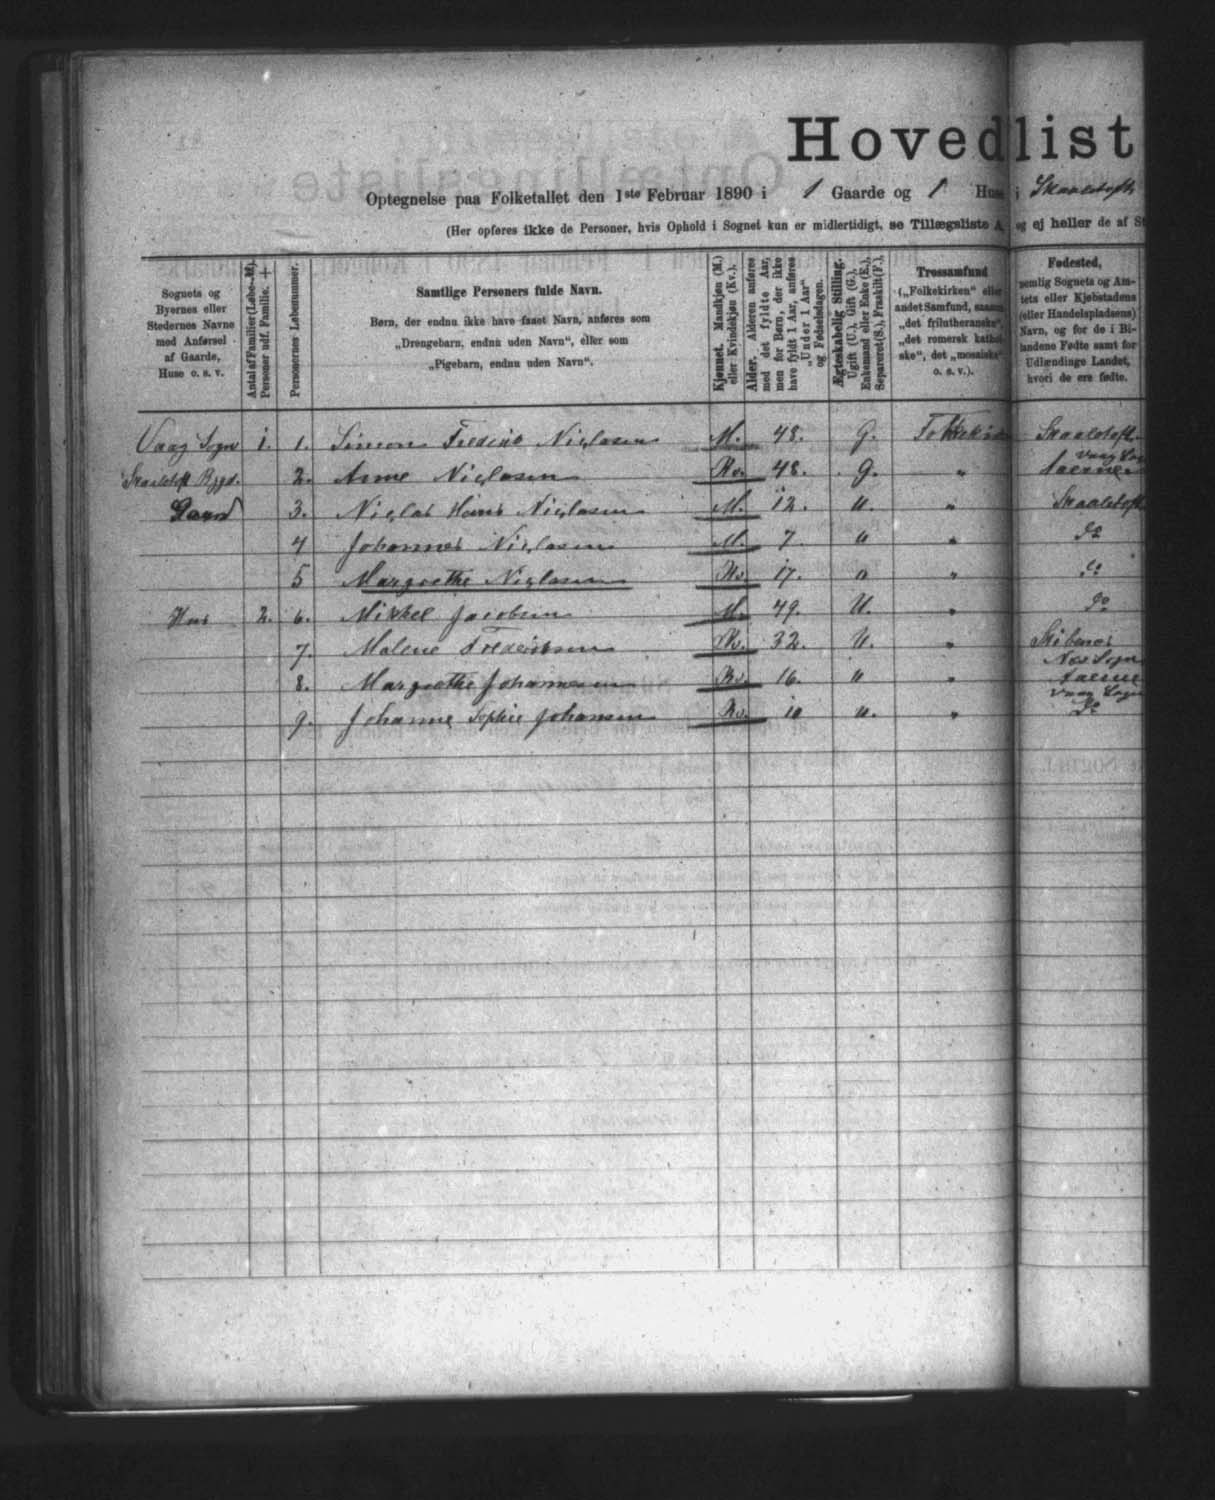 Hovedlist
Optegnelse paa Folketallet den 1ste Februar 1890 i 1 Gaarde og 1 Huse i Skaaletofte
(Her opføres ikke de Personer, hvis Ophold i Sognet kun er midlertidigt, se Tillægsliste A, og ej heller de af St
Sognets og Byernes eller Stedernes Navne med Anførsel af Gaarde, Huse o. s. v.
Antal af Familier (Løbe-№).
Personer udf. Familie. +
Personernes Løbenummer.
Samtlige Personers fulde Navn.
Børn, der endnu ikke have faaet Navn, anføres som
„Drengebarn, endnu uden Navn“, eller som
„Pigebarn, endnu uden Navn“.
Kjønnet. Mandkjøn (M.) eller Kvindekjøn (Kv.).
Alder. Alderen anføres med det fyldte Aar, men for Børn, der ikke have fyldt 1 Aar, anføres „Under 1 Aar“ og Fødselsdagen.
Ægteskabelig Stilling. Ugift (U.), Gift (G.), Enkemand eller Enke (E.), Separeret (S.), Fraskilt (F.).
Trossamfund
(„Folkekirken“ eller
andet Samfund, saasom
„det frilutheranske“,
„det romersk kathol-
ske“, det „mosaiske“
o. s. v.).
Fødested,
nemlig Sognets og Am-
tets eller Kjøbstadens
(eller Handelspladsens)
Navn, og for de i Bi-
landene Fødte samt for
Udlændinge Landet,
hvori de ere fødte.
Vaag Sogn 1. 1. Simon Frederik Niclasen M. 48. G. Folkekirk Skaaletoft
Skaaletoft Bygd. 2. Anne Niclasen Kv. 48. G. „ Vaag Sogn
Gaard 3. Niclas Hans Niclasen M. 12. U. „ Skaaletoft
4 Johannes Niclasen M. 7. „ „ Do
5 Margrethe Niclasen Kv. 17. „ „ Do
Hus 2. 6. Mikkel Jacobsen M. 49. U. „ Do
7. Malene Frederiksen Kv. 32. U. „
Næs Sogn
8. Margrethe Johannesen Kv. 16. „ „
Vaag Sogn
9. Johanne Sophie Johansen Kv. 10 U. „ Do